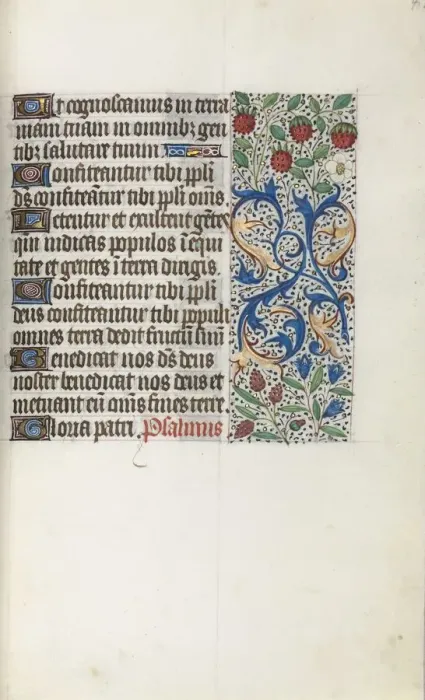 Ut cognoscamus in terra
uiam tuam in omnibꝫ gen
tibꝫ salutare tuum
Confiteantur tibi ppl̄i
ds̄ confiteātur tibi ppl̄i om̄s.
Letentur et exultent gētes
qm̄ iudicas populos ī equi
tate et gentes ī terra dirigis.
Confiteantur tibi ppl̄i
deus confiteantur tibi populi
omnes terra dedit fructū suū
Benedicat nos ds̄ deus
noster benedicat nos deus et
metuant eū om̄s fines terre
Gloria patri. Psalmus